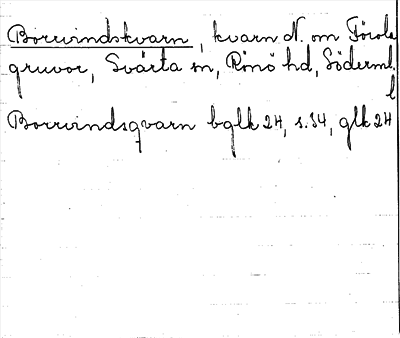 Borrvindskvarn, kvarn N. om Förola
gruvor, Svärta sn, Rönö hd, Söderml.
l
Borrvindsqvarn bglk 24, s. 34, glk 24